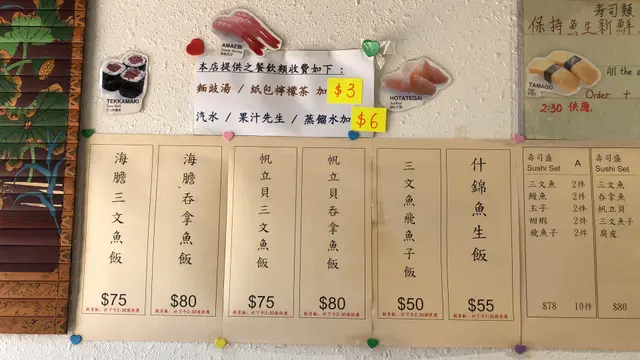 AMAEBI
Sweet Shrimp
TEKKAMAKI
Tuna Roll
HOTATEGAI
Scallop
TAMAGO
本店提供之餐飲類收費如下：
麵豉湯 / 紙包檸檬茶 加 $3
汽水 / 果汁先生 / 蒸餾水加 $6
壽司類
保持魚生新鮮
All the
Order +
2:30 供應
海膽三文魚飯
$75
海膽吞拿魚飯
$80
帆立貝三文魚飯
$75
帆立貝吞拿魚飯
$80
三文魚飛魚子飯
$50
什錦魚生飯
$55
壽司盛 A
Sushi Set
三文魚 2件
鰻魚 2件
玉子 2件
甜蝦 2件
飛魚子 2件
$78 10件
壽司盛
Sushi Set
三文魚
吞拿魚
帆立貝
三文魚子
腐皮
$80